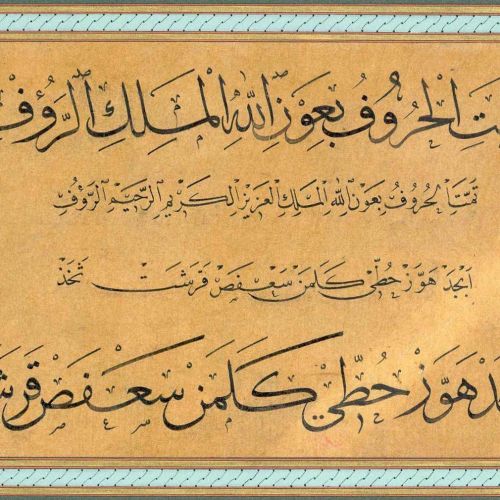 ت الحُرُوفُ بِعَوْنِ اللهِ المَلِكِ الرَّؤُف
تَمَّتِ الحُرُوفُ بِعَوْنِ اللهِ المَلِكِ العَزِيزِ الكَرِيمِ الرَّحِيمِ الرَّؤُفِ
اَبْجَدْ هَوَّزْ حُطِّي كَلَمَنْ سَعْفَصْ قَرَشَتْ ثَخَذْ
جَدْ هَوَّزْ حُطِّي كَلَمَنْ سَعْفَصْ قَرَشَ